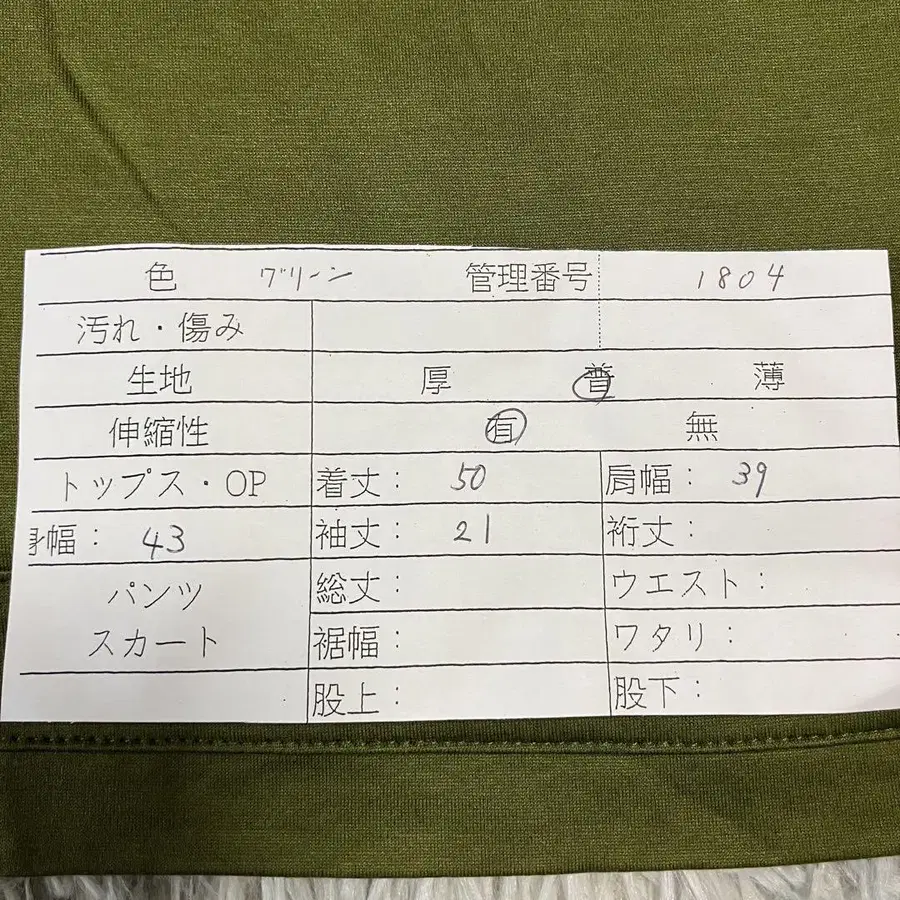 色 グリーン 管理番号 1804
汚れ・傷み
生地 厚 普 薄
伸縮性 有 無
トップス・OP 着丈: 50 肩幅: 39
身幅: 43 袖丈: 21 裄丈:
パンツ 総丈: ウエスト:
スカート 裾幅: ワタリ:
股上: 股下: